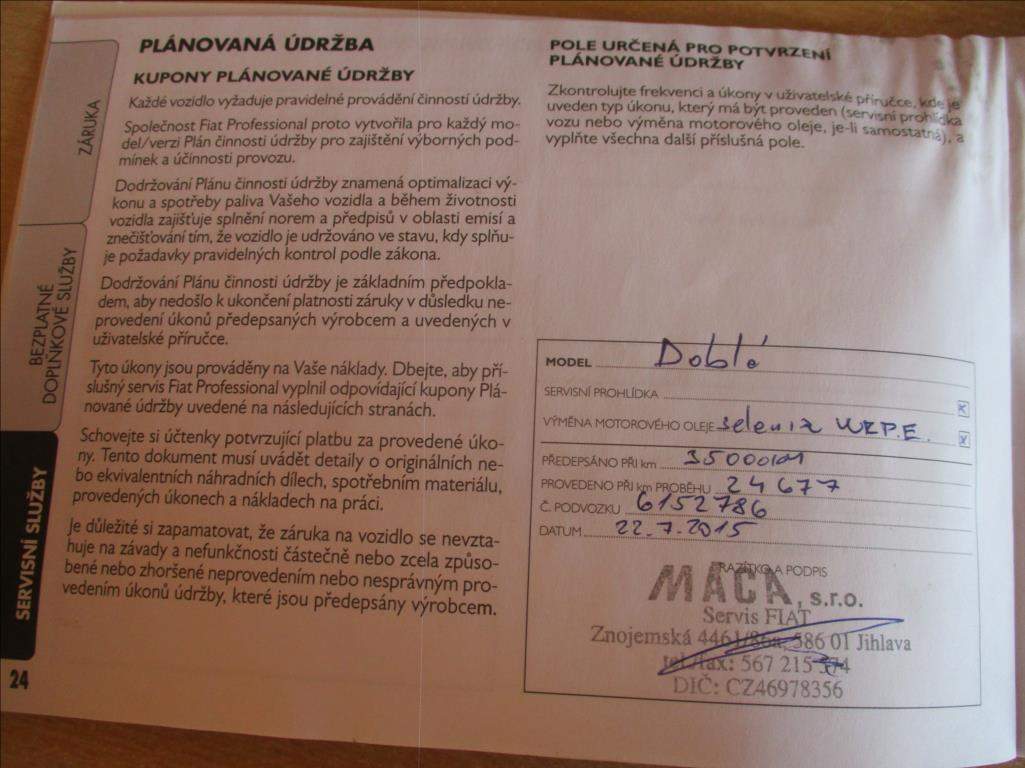 ZÁRUKA
BEZPLATNÉ
DOPLŇKOVÉ SLUŽBY
SERVISNÍ SLUŽBY
24
PLÁNOVANÁ ÚDRŽBA
KUPONY PLÁNOVANÉ ÚDRŽBY
Každé vozidlo vyžaduje pravidelné provádění činností údržby.
Společnost Fiat Professional proto vytvořila pro každý mo-
del/verzi Plán činnosti údržby pro zajištění výborných pod-
mínek a účinnosti provozu.
Dodržování Plánu činnosti údržby znamená optimalizaci vý-
konu a spotřeby paliva Vašeho vozidla a během životnosti
vozidla zajišťuje splnění norem a předpisů v oblasti emisí a
znečišťování tím, že vozidlo je udržováno ve stavu, kdy splňu-
je požadavky pravidelných kontrol podle zákona.
Dodržování Plánu činnosti údržby je základním předpokla-
dem, aby nedošlo k ukončení platnosti záruky v důsledku ne-
provedení úkonů předepsaných výrobcem a uvedených v
uživatelské příručce.
Tyto úkony jsou prováděny na Vaše náklady. Dbejte, aby pří-
slušný servis Fiat Professional vyplnil odpovídající kupony Plá-
nované údržby uvedené na následujících stranách.
Schovejte si účtenky potvrzující platbu za provedené úko-
ny. Tento dokument musí uvádět detaily o originálních ne-
bo ekvivalentních náhradních dílech, spotřebním materiálu,
provedených úkonech a nákladech na práci.
Je důležité si zapamatovat, že záruka na vozidlo se nevzta-
huje na závady a nefunkčnosti částečně nebo zcela způso-
bené nebo zhoršené neprovedením nebo nesprávným pro-
vedením úkonů údržby, které jsou předepsány výrobcem.
POLE URČENÁ PRO POTVRZENÍ
PLÁNOVANÉ ÚDRŽBY
Zkontrolujte frekvenci a úkony v uživatelské příručce, kde je
uveden typ úkonu, který má být proveden (servisní prohlídka
vozu nebo výměna motorového oleje, je-li samostatná), a
vyplňte všechna další příslušná pole.
MODEL Dobló
SERVISNÍ PROHLÍDKA
VÝMĚNA MOTOROVÉHO OLEJE selenia W.R.P.E.
PŘEDEPSÁNO PŘI km 35000
PROVEDENO PŘI km PROBĚHU 24677
Č. PODVOZKU 6152786
DATUM 22.7.2015
RAZÍTKO A PODPIS
MACA, s.r.o.
Servis FIAT
Znojemská 4461/86a, 586 01 Jihlava
tel./fax: 567 215 374
DIČ: CZ46978356